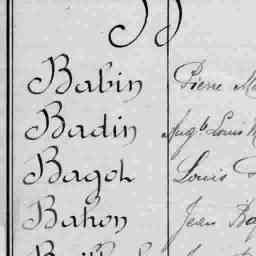 B
Babin Pierre
Badin Augte Louis
Bagot Louis
Bahon Jean